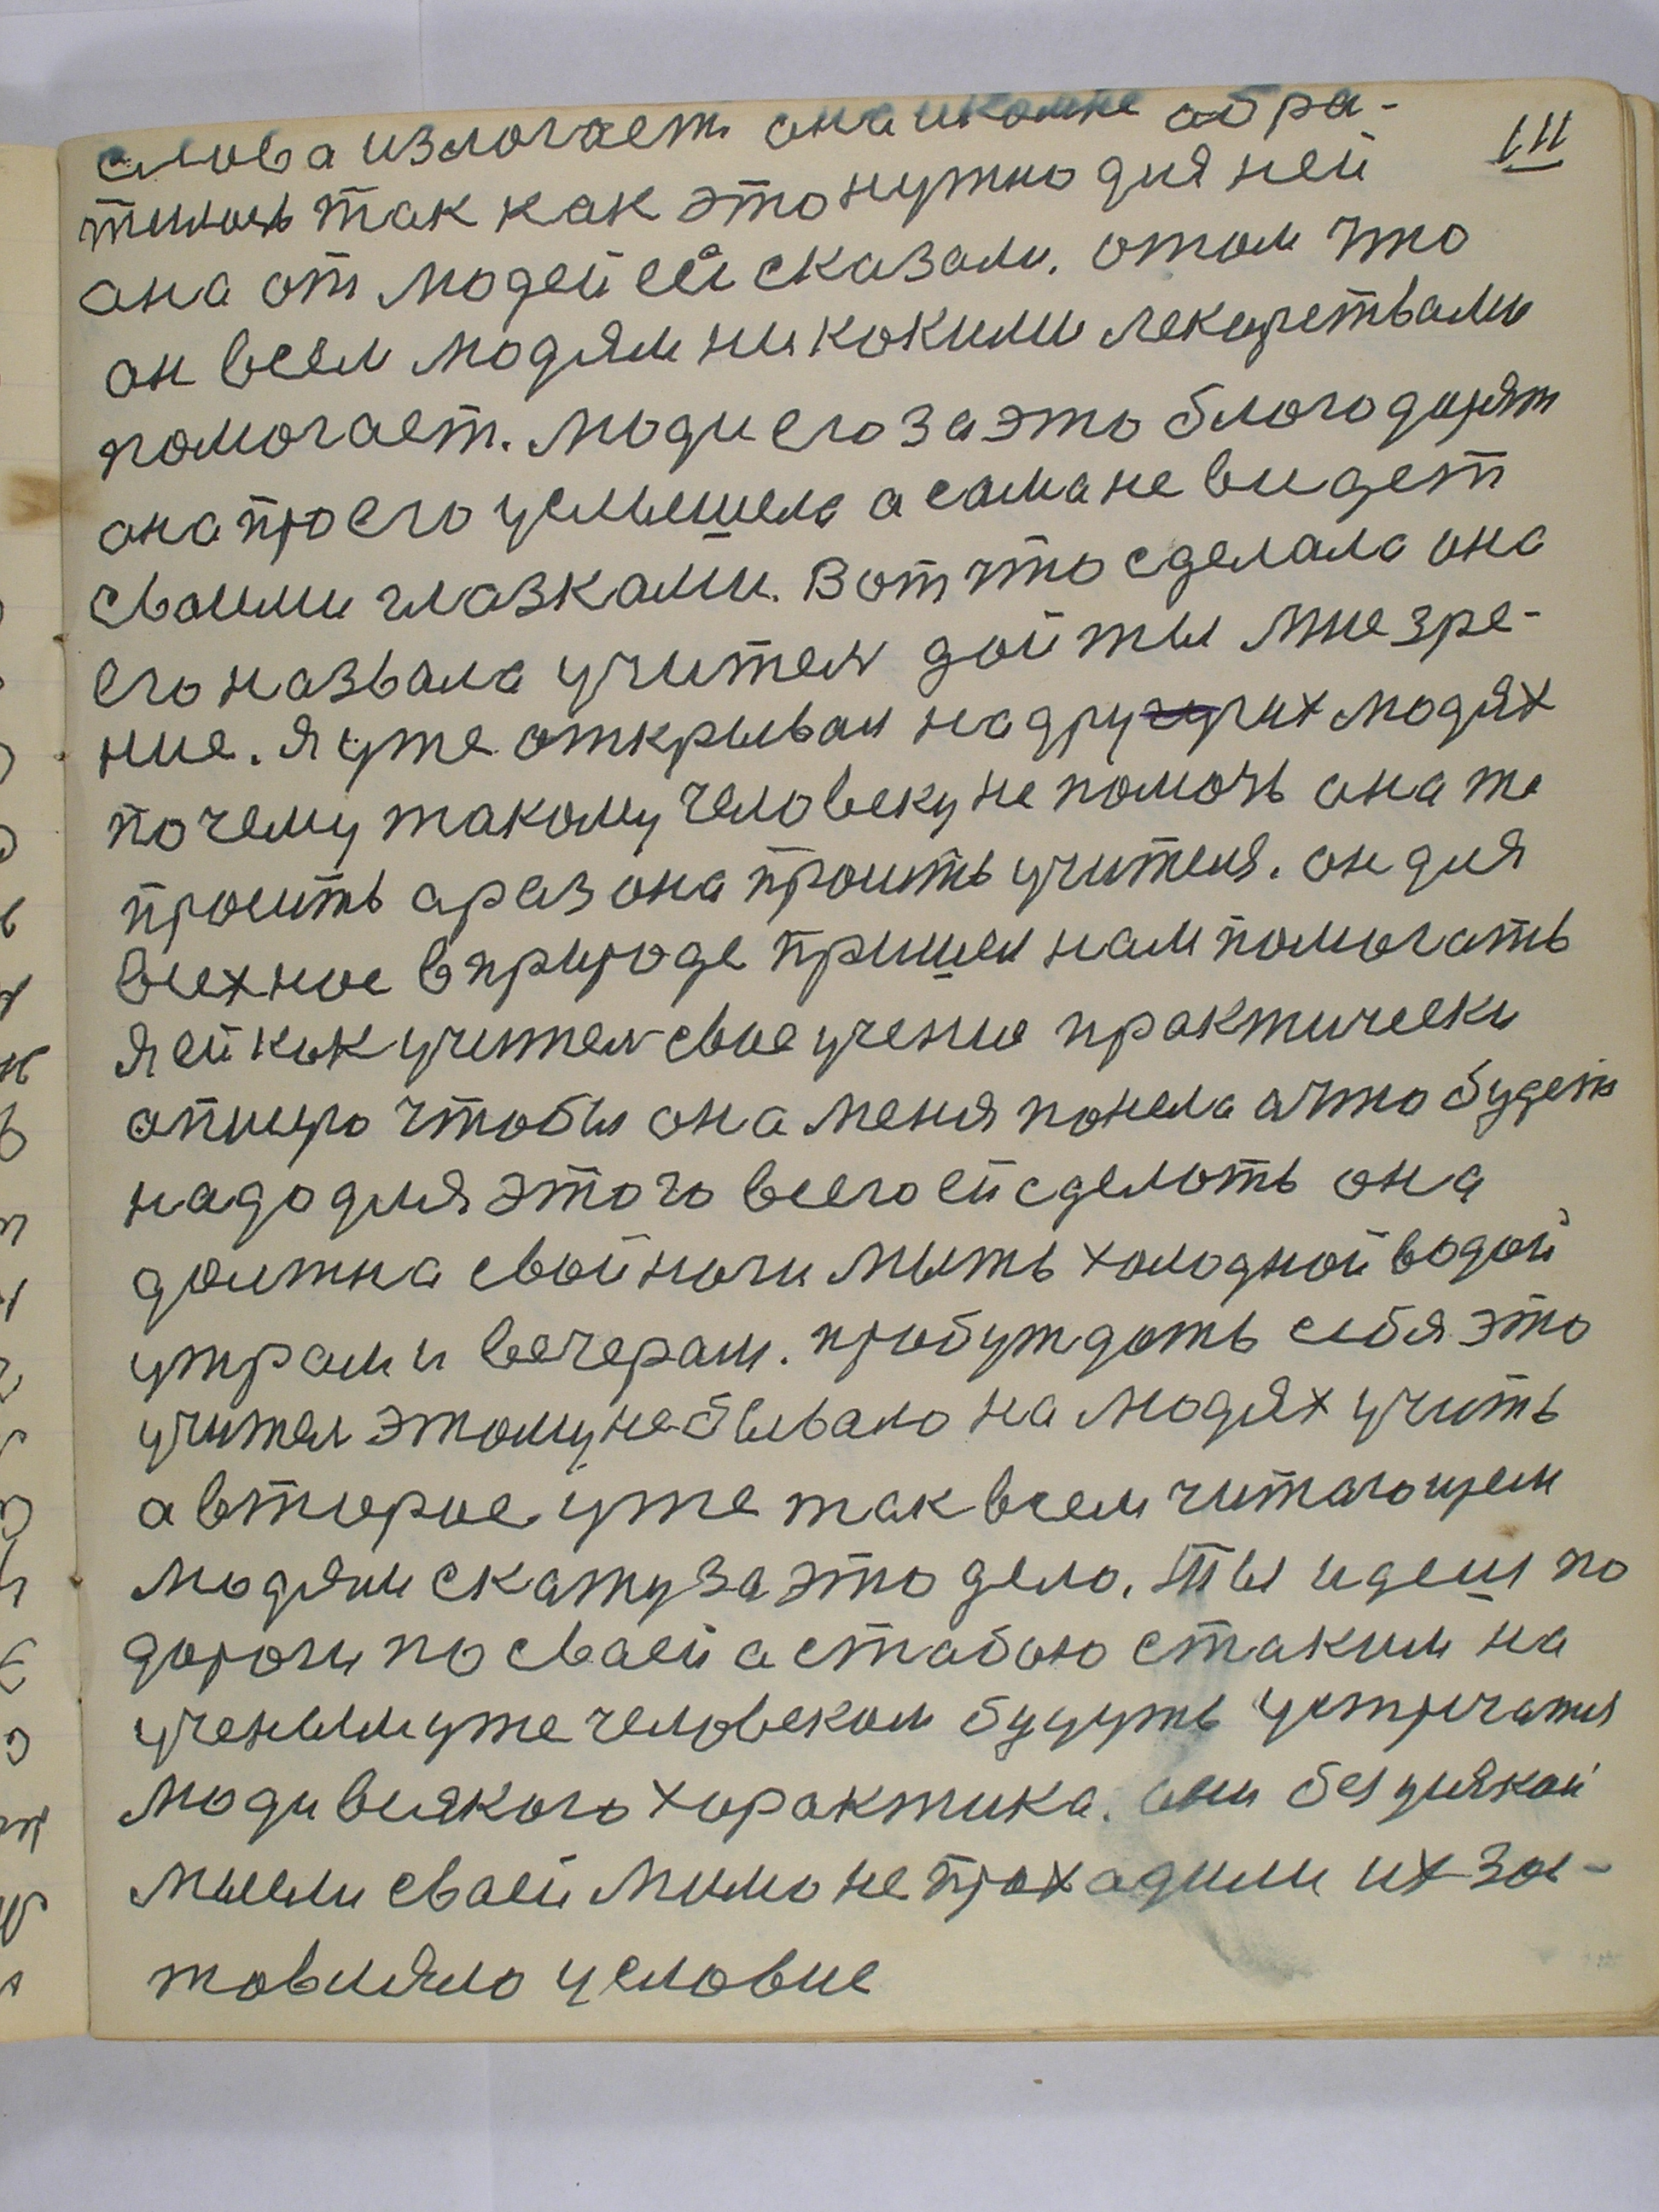 111
слова излогает она и комне обра-
тилась так как это нужно для ней
она от людей ей сказали. отом что
он всем людям ни кокими лекарствами
помогает. Люди его за это благодарят
она про его услышела а сама не видет
своими глазками. Вот что сделала она
его назвала учител дай ты мне зре-
ние. Я уже открывал на других людях
почему такому человеку не помочь она же
просить а раз она просить учителя. он для
всех нас в природе пришел нам помогать
я ей как учител свое учение практически
опишу чтобы она меня понела а что будеть
надо для этого всего ей сделать она
должна свой ноги мыть холодной водой
утрам и вечерам. пробуждать себя это
учител этому не бывало на людях учить
а второе уже так всем читающем
людям скажу за это дело. Ты идеш по
дороги по своей а с табою с таким на
ученым уже человеком будуть устричатся
люди всякого характика. они без всякой
мысли своей мимо не прохадили их зас-
товляло условие